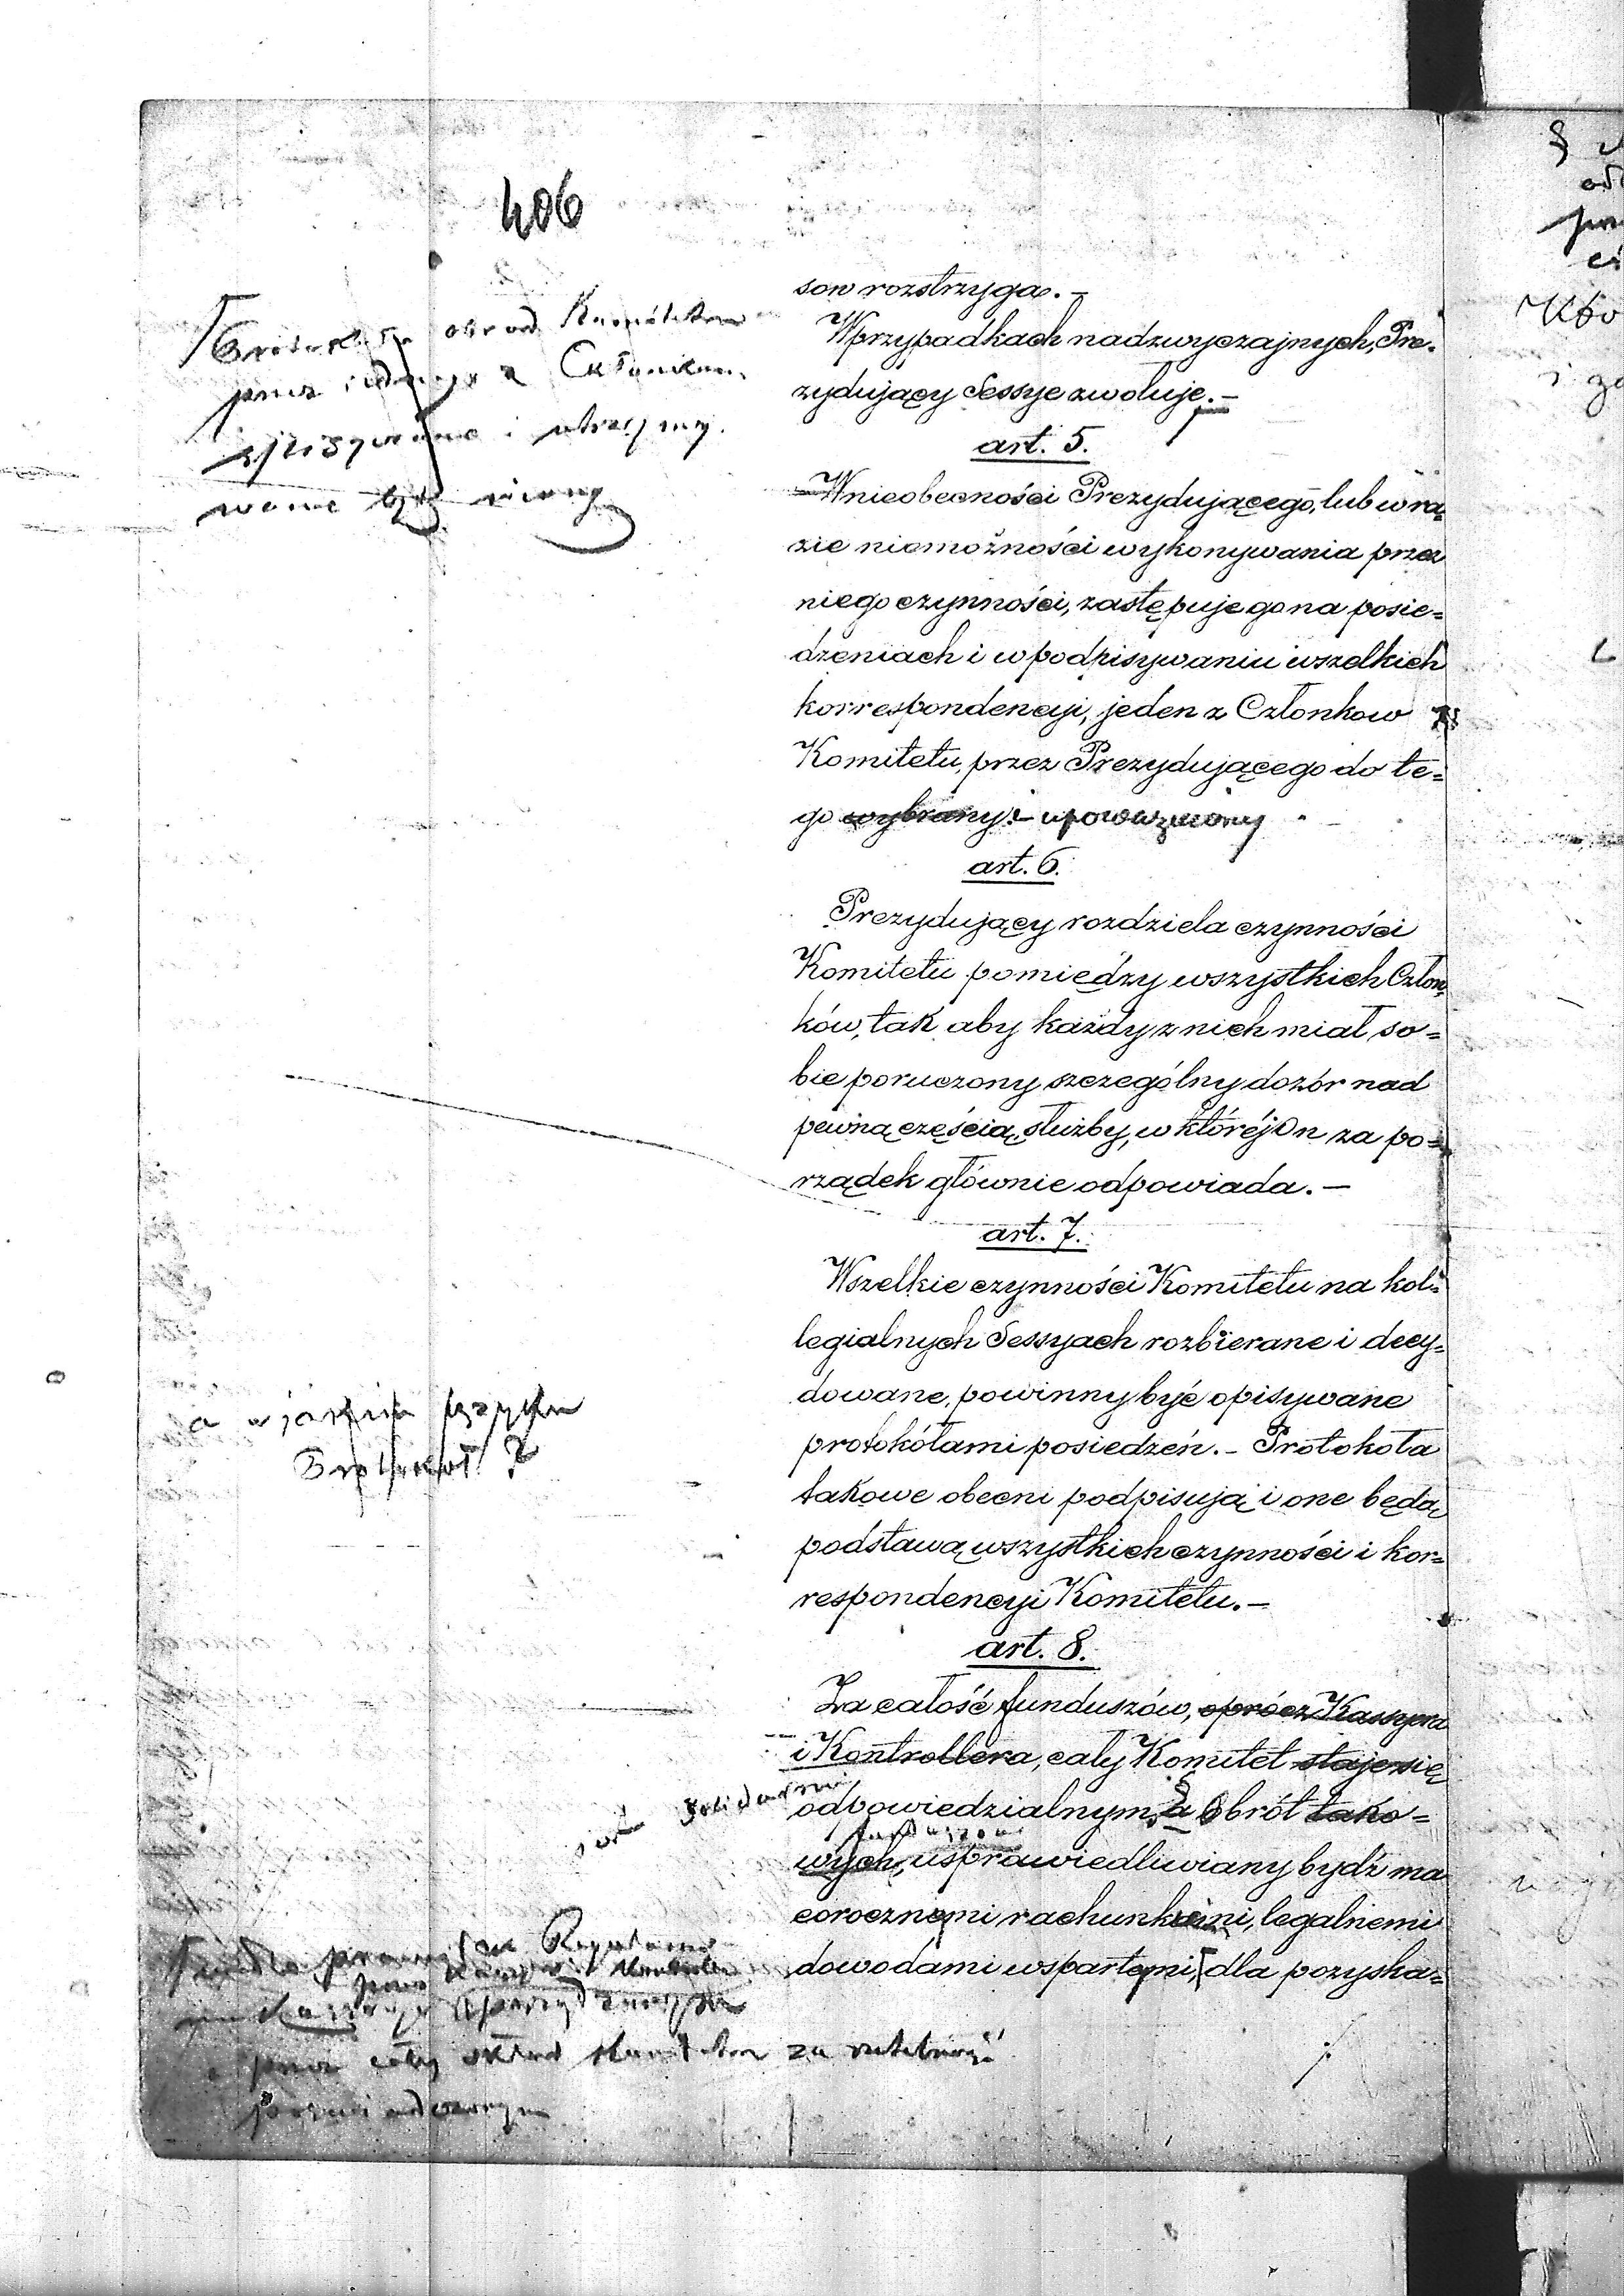 406
sow rozstrzyga. —
W przypadkach nadzwyczajnych, Pre-
zydujący Sessye zwołuje. —
art. 5.
W nieobecności Prezydującego, lub w ra-
zie niemożności wykonywania przez
niego czynności, zastępuje go na posie=
dzeniach i w podpisywaniu wszelkich
korrespondencyi, jeden z Członkow
Komitetu, przez Prezydującego do te=
go wybrany i upoważniony
art. 6.
Prezydujący rozdziela czynności
Komitetu pomiędzy wszystkich Człon-
ków, tak aby każdy z nich miał so=
bie poruczony szczególny dozór nad
pewną częścią służby, w któréj On za po=
rządek głównie odpowiada. —
art. 7.
Wszelkie czynności Komitetu na kol=
legialnych Sessyach rozbierane i decy=
dowane, powinny być opisywane
protokółami posiedzeń. — Protokoła
takowe obecni podpisują i one będą
podstawą wszystkich czynności i kor=
respondencyi Komitetu. —
art. 8.
Za całość funduszów, oprócz Kassyera
i Kontrollera, cały Komitet staje się
odpowiedzialnym, a Obrót tako=
wych, usprawiedliwiany bydź ma
corocznemi rachunkami, legalnemi
dowodami wspartemi, dla pozyska=
obrad Komitetu
przez jednego z Członków
spisywane i utrzymy-
wane być winny
a w jakim języku
Protokół?
jest solidarnie
funduszów
przez cały skład Komitetu za rzetelność